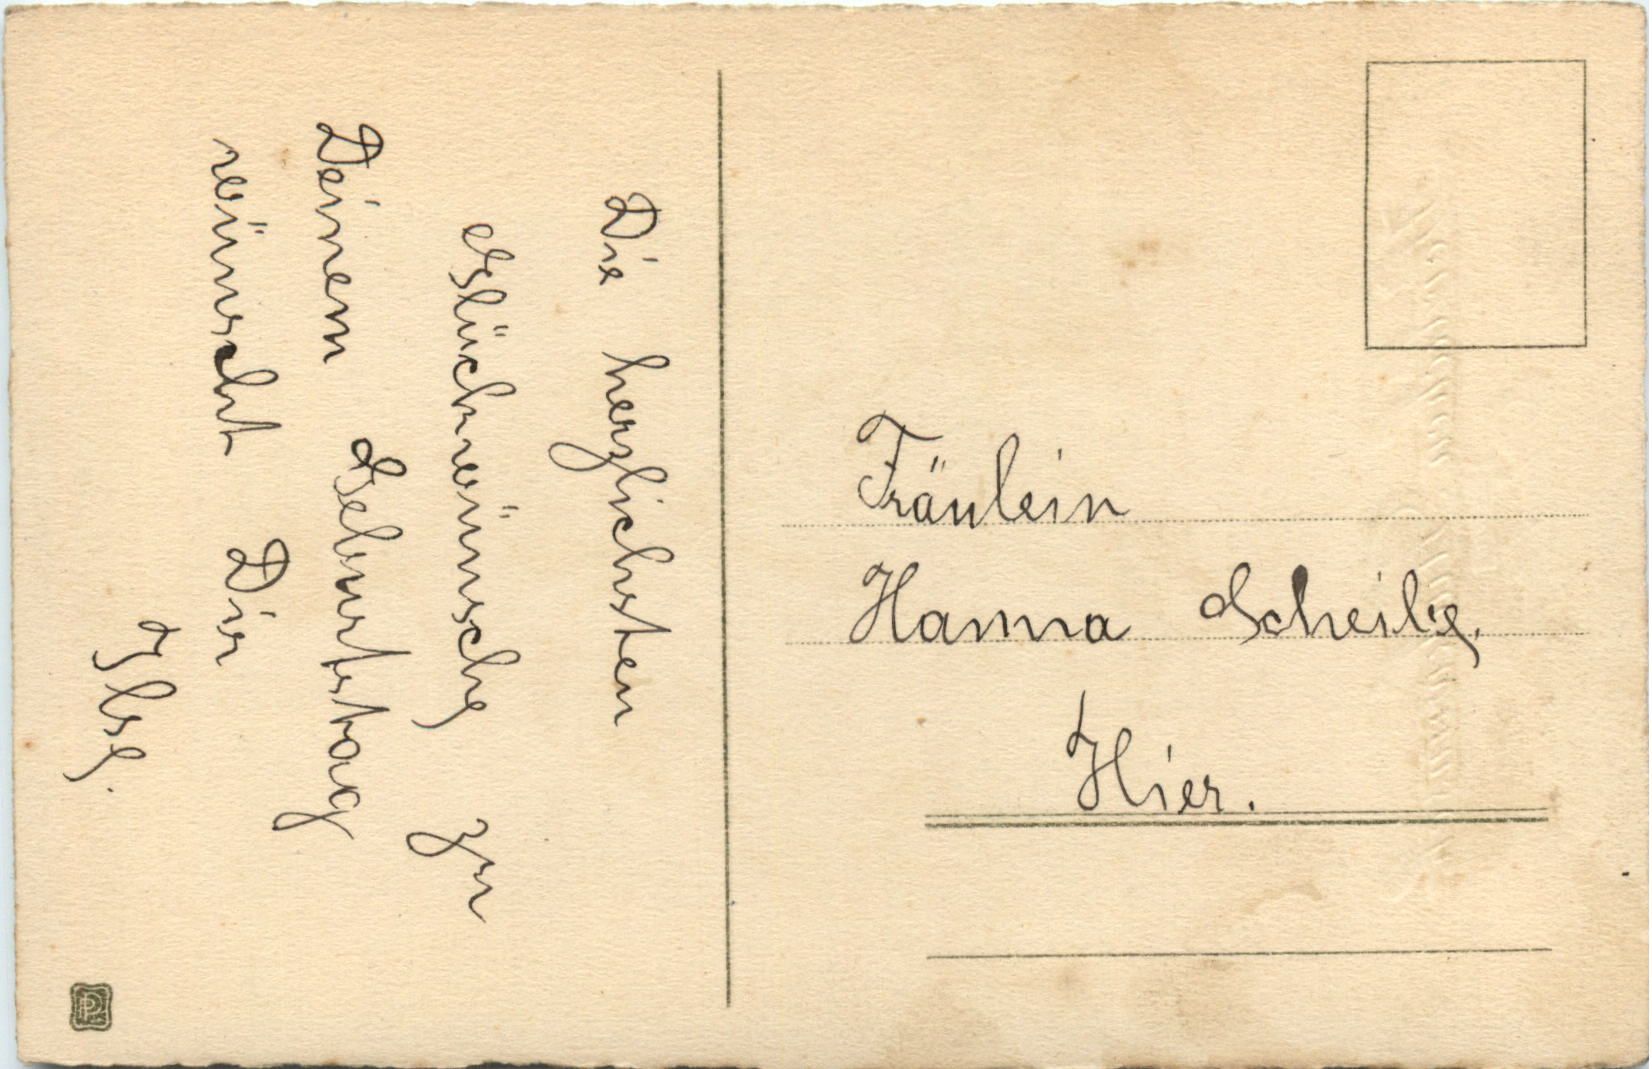 Die herzlichsten
Glückwünsche zu
Deinem Geburtstag
wünscht Dir
Ilse.
Fräulein
Hanna Scheibe.
Hier.